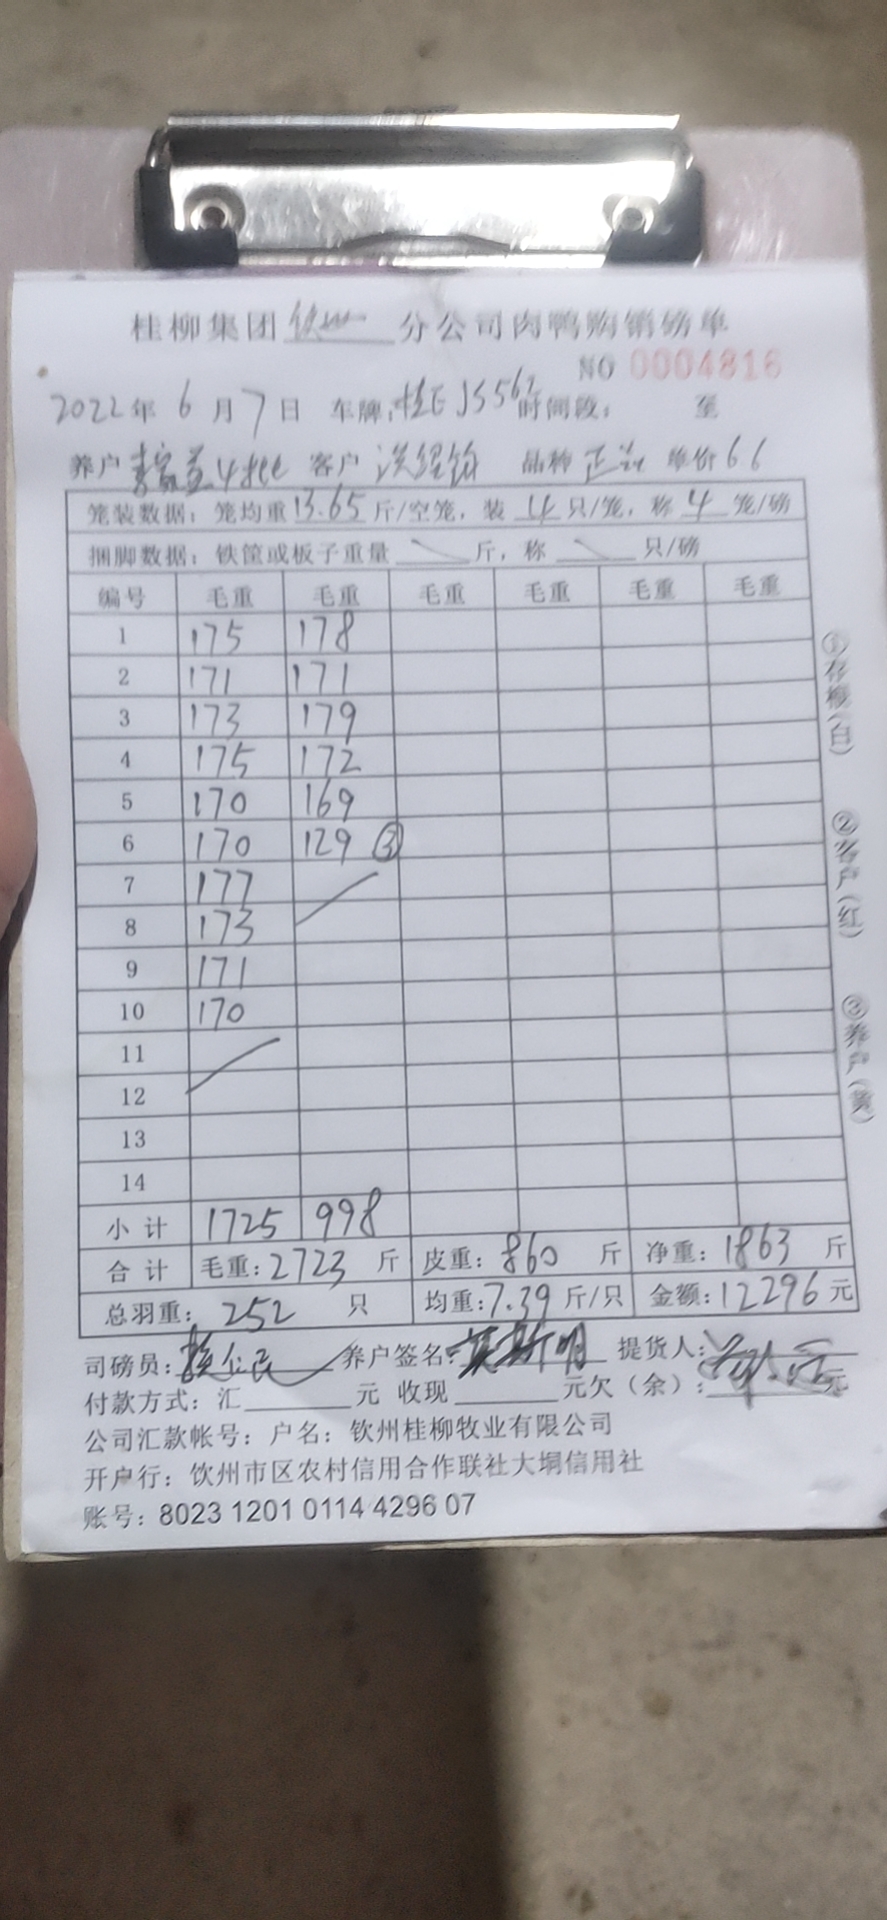 桂柳集团钦州分公司肉鸭购销磅单
NO 0004816
2022年6月7日 车牌:桂E JS562 时间段: 至
养户 客户 洪经铈 品种 正 单价 6.6
笼装数据: 笼均重 13.65 斤/空笼, 装 4 只/笼, 称 4 笼/磅
捆脚数据: 铁筐或板子重量 斤, 称 只/磅
编号 毛重 毛重 毛重 毛重 毛重 毛重
1 175 178
2 171 171
3 173 179
4 175 172
5 170 169
6 170 129 ③
7 177
8 173
9 171
10 170
11
12
13
14
小计 1725 998
合计 毛重:2723 斤 皮重:860 斤 净重:1863 斤
总羽重: 252 只 均重:7.39 斤/只 金额:12296 元
司磅员: 养户签名: 莫斯明 提货人:
付款方式: 汇 元 收现 元欠(余): 元
公司汇款帐号: 户名: 钦州桂柳牧业有限公司
开户行: 钦州市区农村信用合作联社大垌信用社
账号: 8023 1201 0114 4296 07
①存根(白) ②客户(红) ③养户(黄)